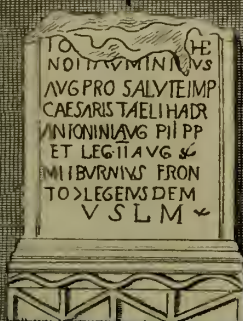 TO HE
NDIT NVMINIBVS
AVG PRO SALVTE IMP
CAESARIS T AELI HADR
ANIONINI AVG PII PP
ET LEG·II AVG
MIIBVRNIVS FRON
TO>LEGEIVSDEM
V S L M